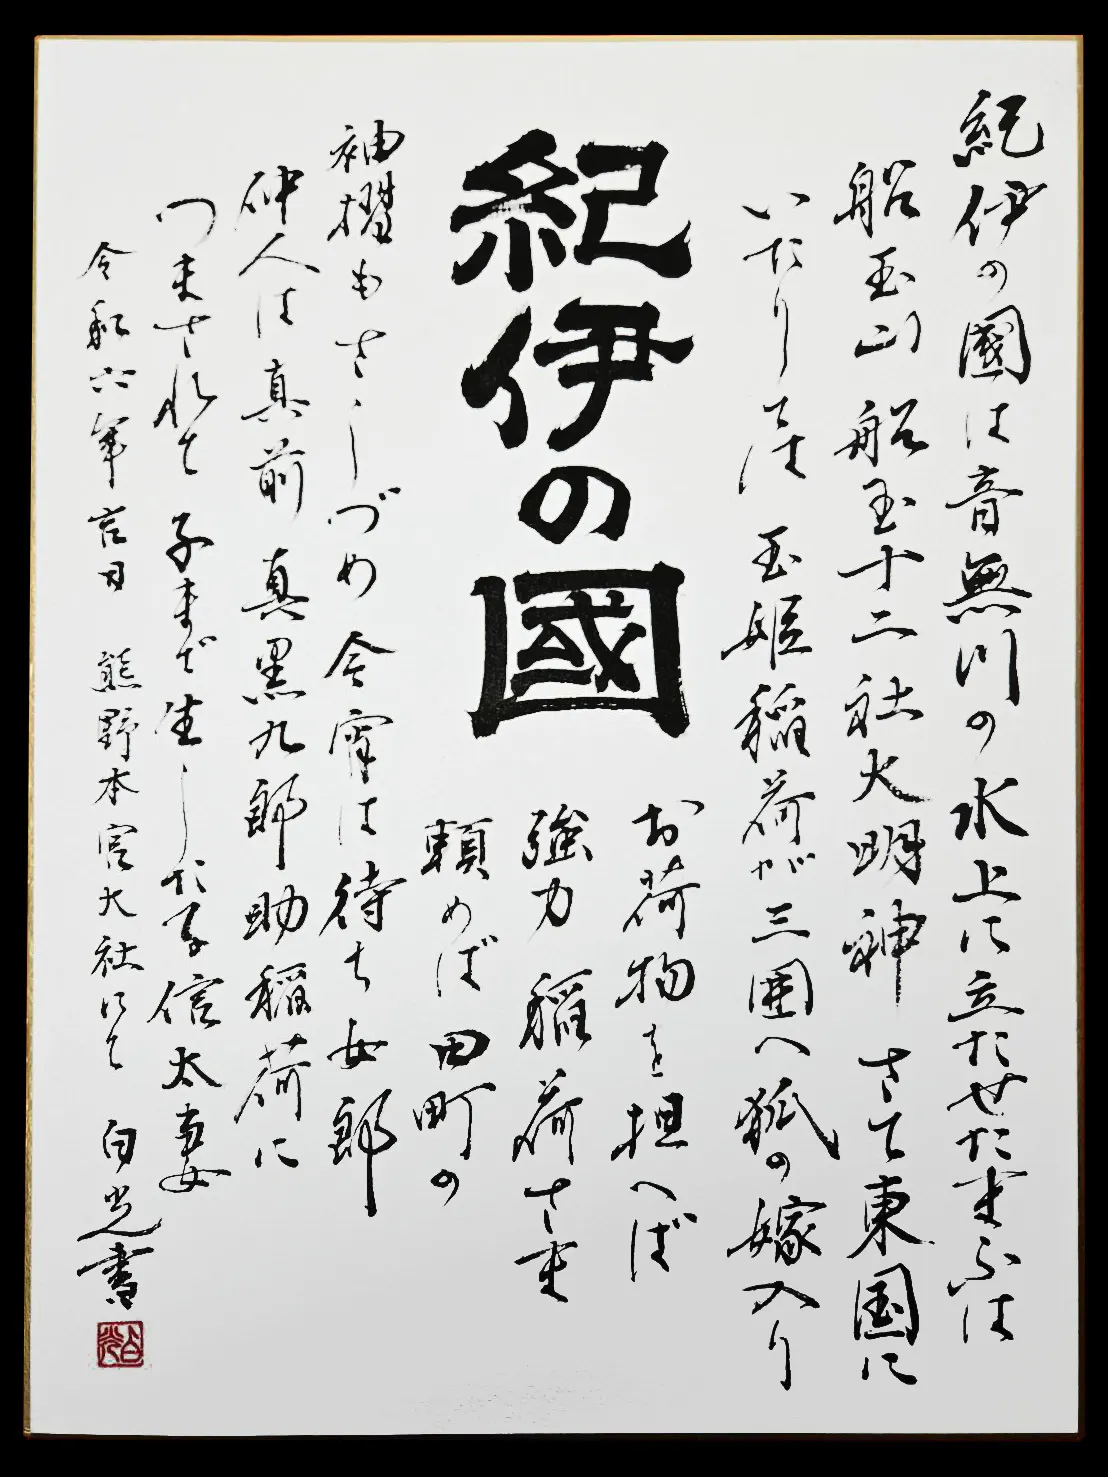 紀伊の國は音無川の水上に立たせたまふは
船玉山 船玉十二社大明神 さて東国に
いたりては 玉姫稲荷が三囲へ狐の嫁入り
紀伊の國
お荷物を担へば
強力 稲荷さま
頼めば田町の
袖摺もさしづめ今宵は待ち女郎
仲人は真前 真黒九郎助稲荷に
つまされて 子まで生した 信太妻
令和六年 吉日 熊野本宮大社にて 白光書
白光